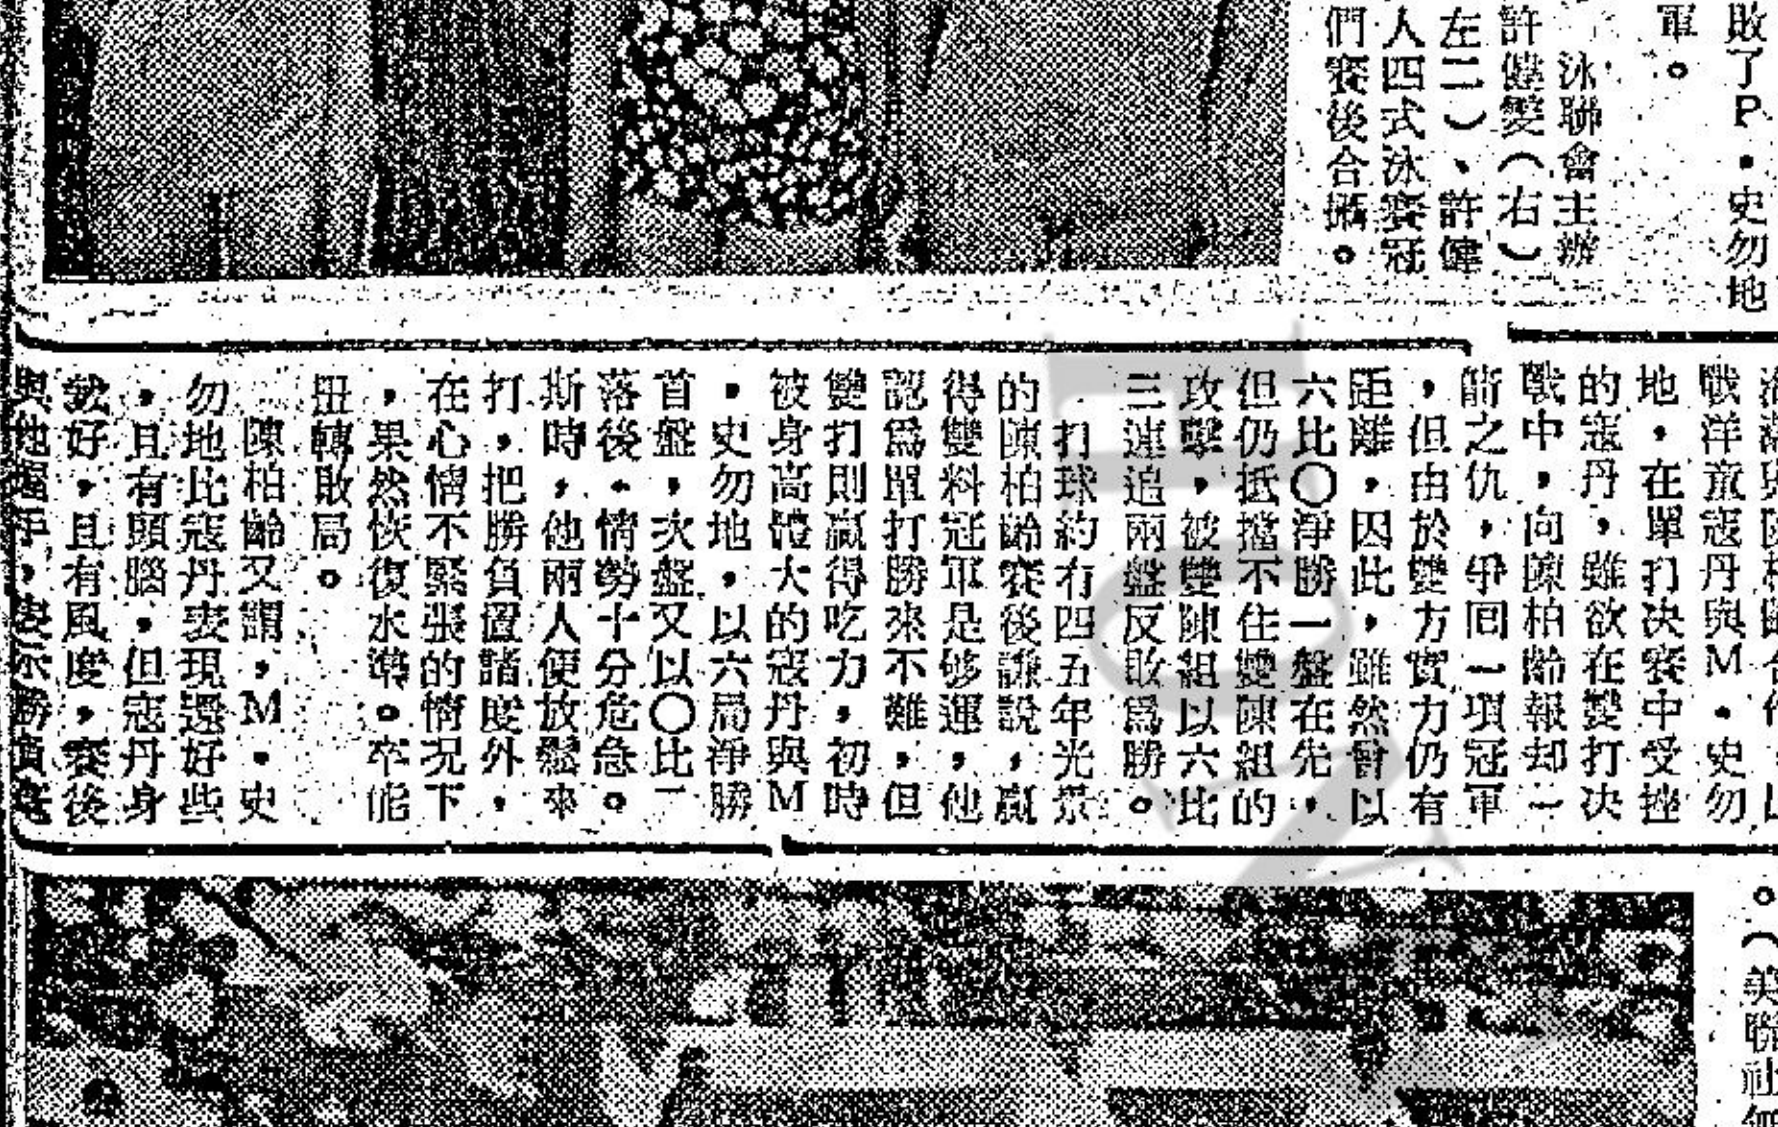 敗了P・史勿地
軍。
泳聯會主辦
許健雙（右）
左二）、許偉
人四式泳賽冠
們賽後合攝。
戰洋童寇丹與M・史勿
地，在單打決賽中受挫
的寇丹，雖欲在雙打決
戰中，向陳柏齡報却一
箭之仇，爭回一項冠軍
，但由於雙方實力仍有
距離，因此，雖然曾以
六比〇淨勝一盤在先，
但仍抵擋不住雙陳組的
攻擊，被雙陳組以六比
三連追兩盤反敗爲勝。
打球約有四五年光景
的陳柏齡賽後謙説，贏
得雙料冠軍是够運，他
認爲單打勝來不難，但
雙打則贏得吃力，初時
被身高體大的寇丹與M
・史勿地，以六局淨勝
首盤，次盤又以〇比二
落後，情勢十分危急。
斯時，他兩人便放鬆來
打，把勝負置諸度外，
在心情不緊張的情况下
，果然恢復水準。卒能
扭轉敗局。
陳柏齡又謂，M・史
勿地比寇丹表現還好些
，且有頭腦，但寇丹身
裁好，且有風度，賽後
與他握手，表示勝負
。（美聯社